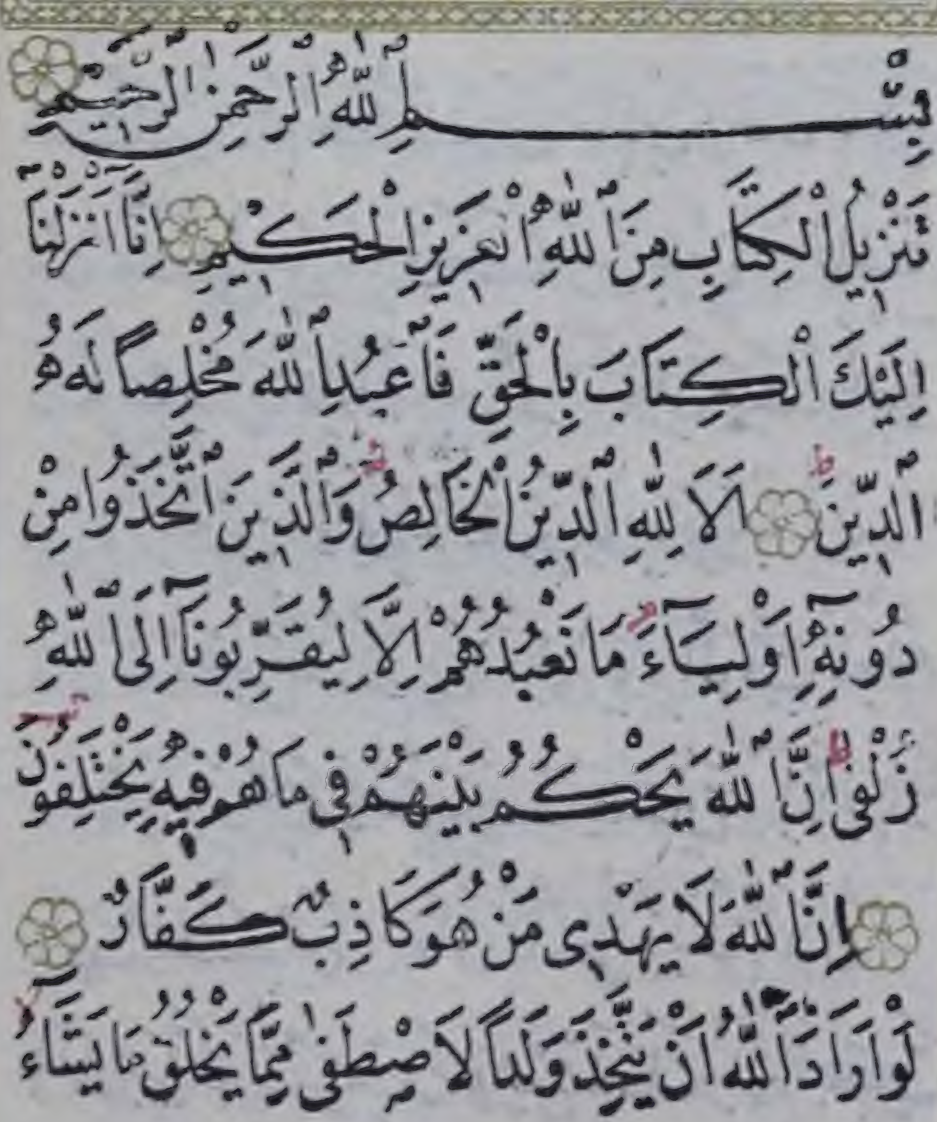 بِسْمِ اللّٰهِ الرَّحْمٰنِ الرَّحِيْمِ
تَنْزِيلُ الْكِتَابِ مِنَ اللّٰهِ الْعَزِيزِ الْحَكِيْمِ اِنَّٓا اَنْزَلْنَٓا
اِلَيْكَ الْكِتَابَ بِالْحَقِّ فَاعْبُدِ اللّٰهَ مُخْلِصًا لَهُ
الدِّينَ ط اَلَا لِلّٰهِ الدِّينُ الْخَالِصُ وَالَّذِينَ اتَّخَذُوا مِنْ
دُونِهٓ اَوْلِيَٓاءَ مَا نَعْبُدُهُمْ اِلَّا لِيُقَرِّبُونَٓا اِلَى اللّٰهِ
زُلْفٰى اِنَّ اللّٰهَ يَحْكُمُ بَيْنَهُمْ فِى مَا هُمْ فِيهِ يَخْتَلِفُونَ
اِنَّ اللّٰهَ لَا يَهْدِى مَنْ هُوَ كَاذِبٌ كَفَّارٌ
لَوْ اَرَادَ اللّٰهُ اَنْ يَتَّخِذَ وَلَدًا لَاصْطَفٰى مِمَّا يَخْلُقُ مَا يَشَٓاءُ